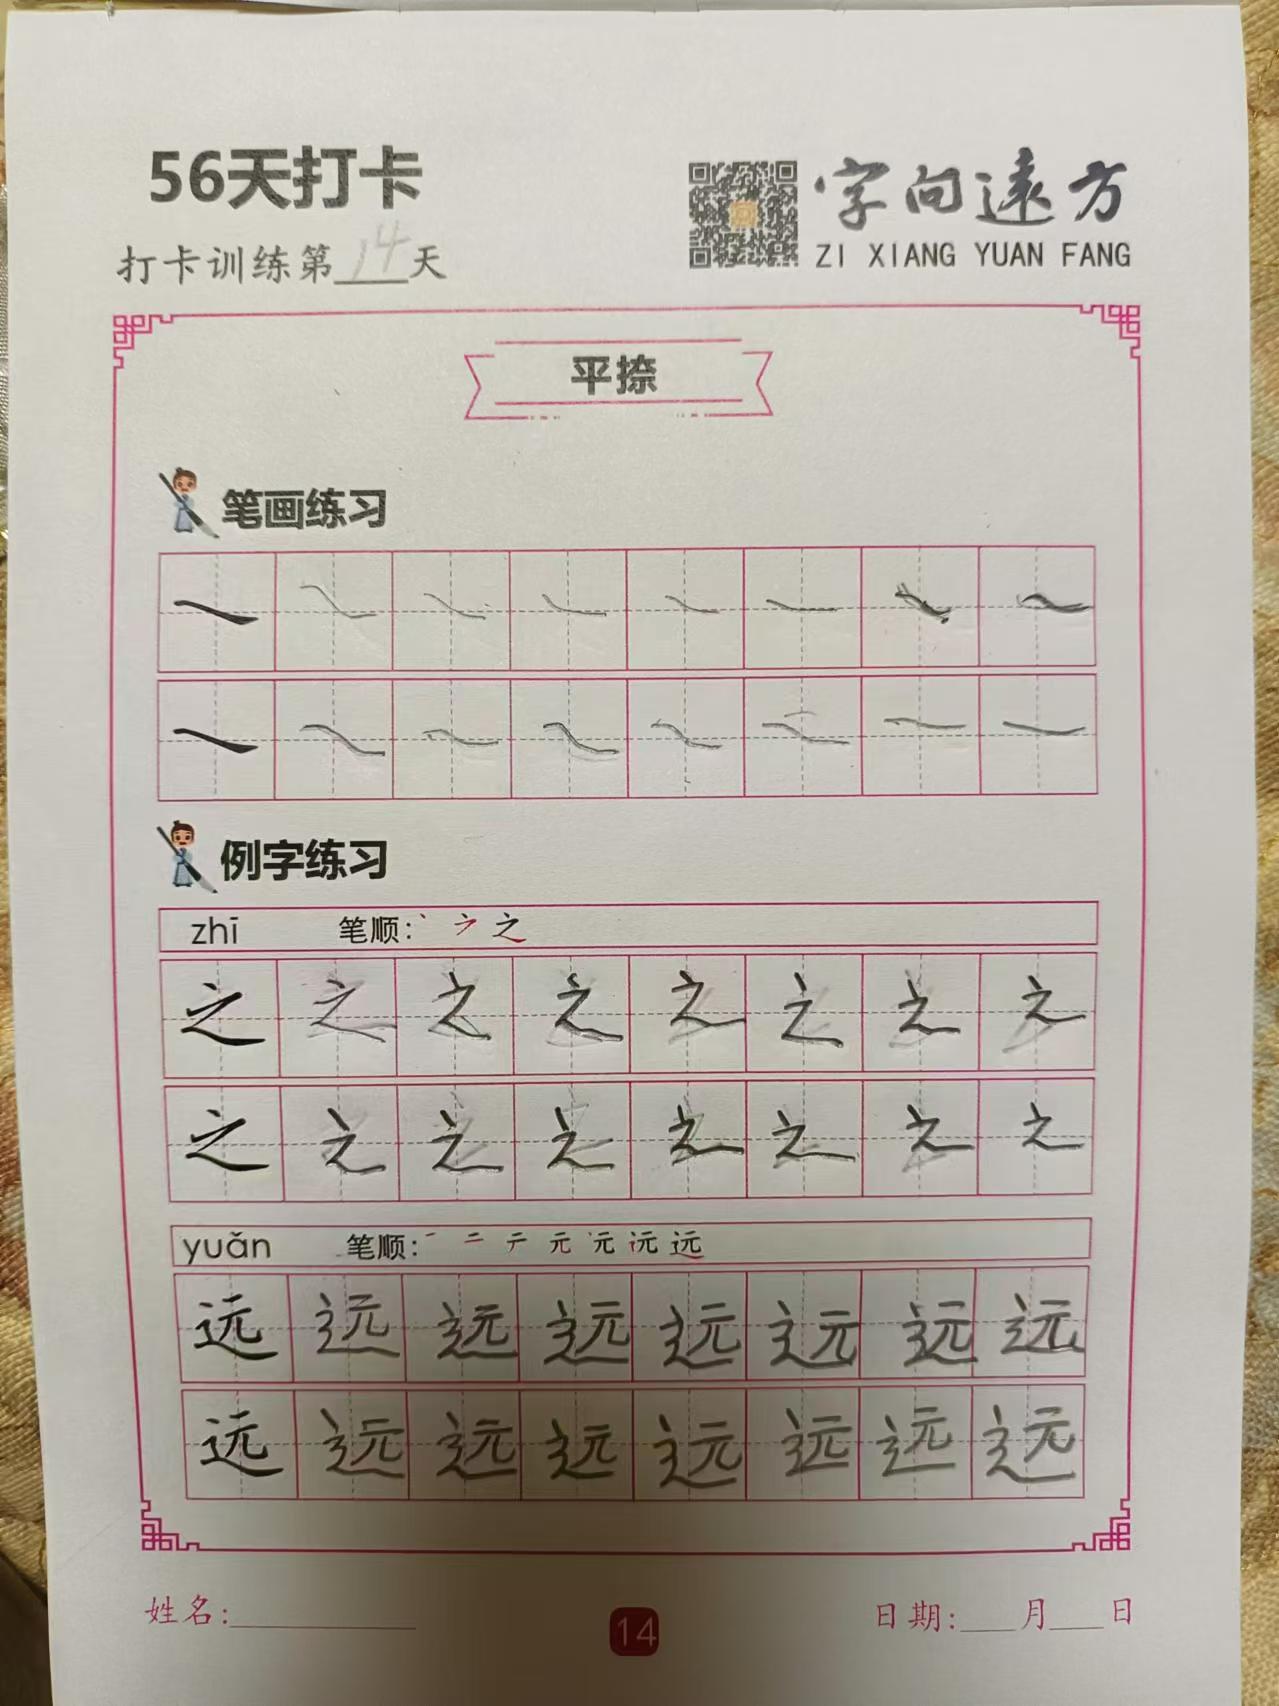 56天打卡
字向遠方
打卡训练第14天
ZI XIANG YUAN FANG
平捺
笔画练习
例字练习
zhī 笔顺：丶 ㇇ 之
之 之 之 之 之 之 之 之
之 之 之 之 之 之 之 之
yuǎn 笔顺： 一 二 テ 元 沅 远
远 远 远 远 远 远 远 远
远 远 远 远 远 远 远 远
姓名:
14
日期:___月___日